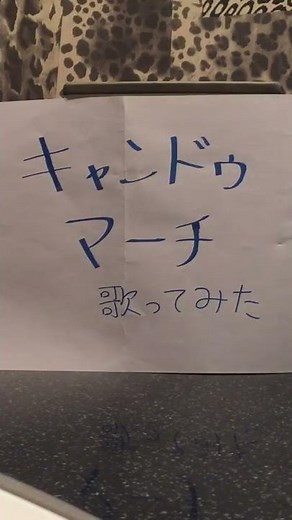 キャンドゥ
マーチ
歌ってみた